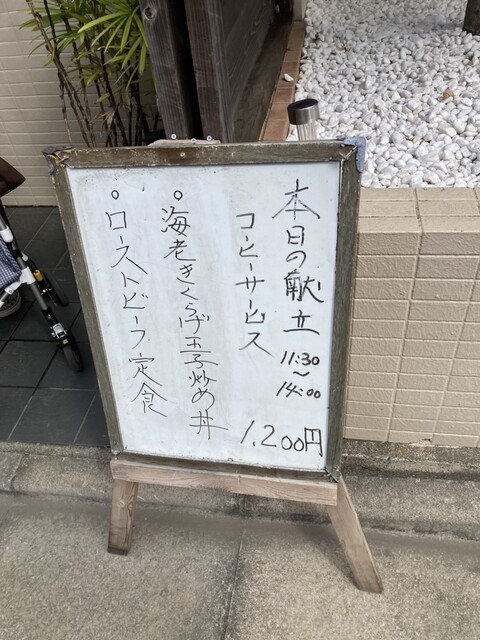 本日の献立 11:30〜14:00
コーヒーサービス 1,200円
○海老きくらげ玉子炒め丼
○ローストビーフ定食